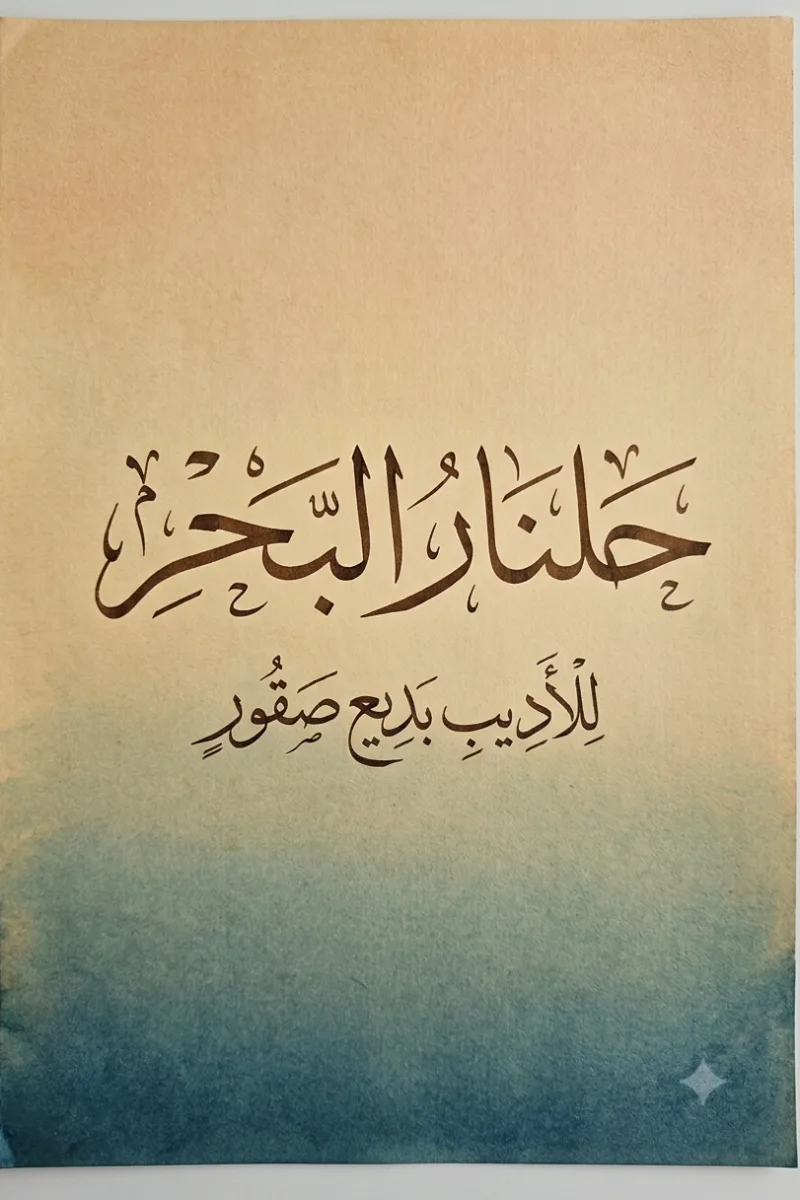 حَلنَارُ البَّحْرِ
لِلْأَدِيبِ بَدِيع صَقُورٍ